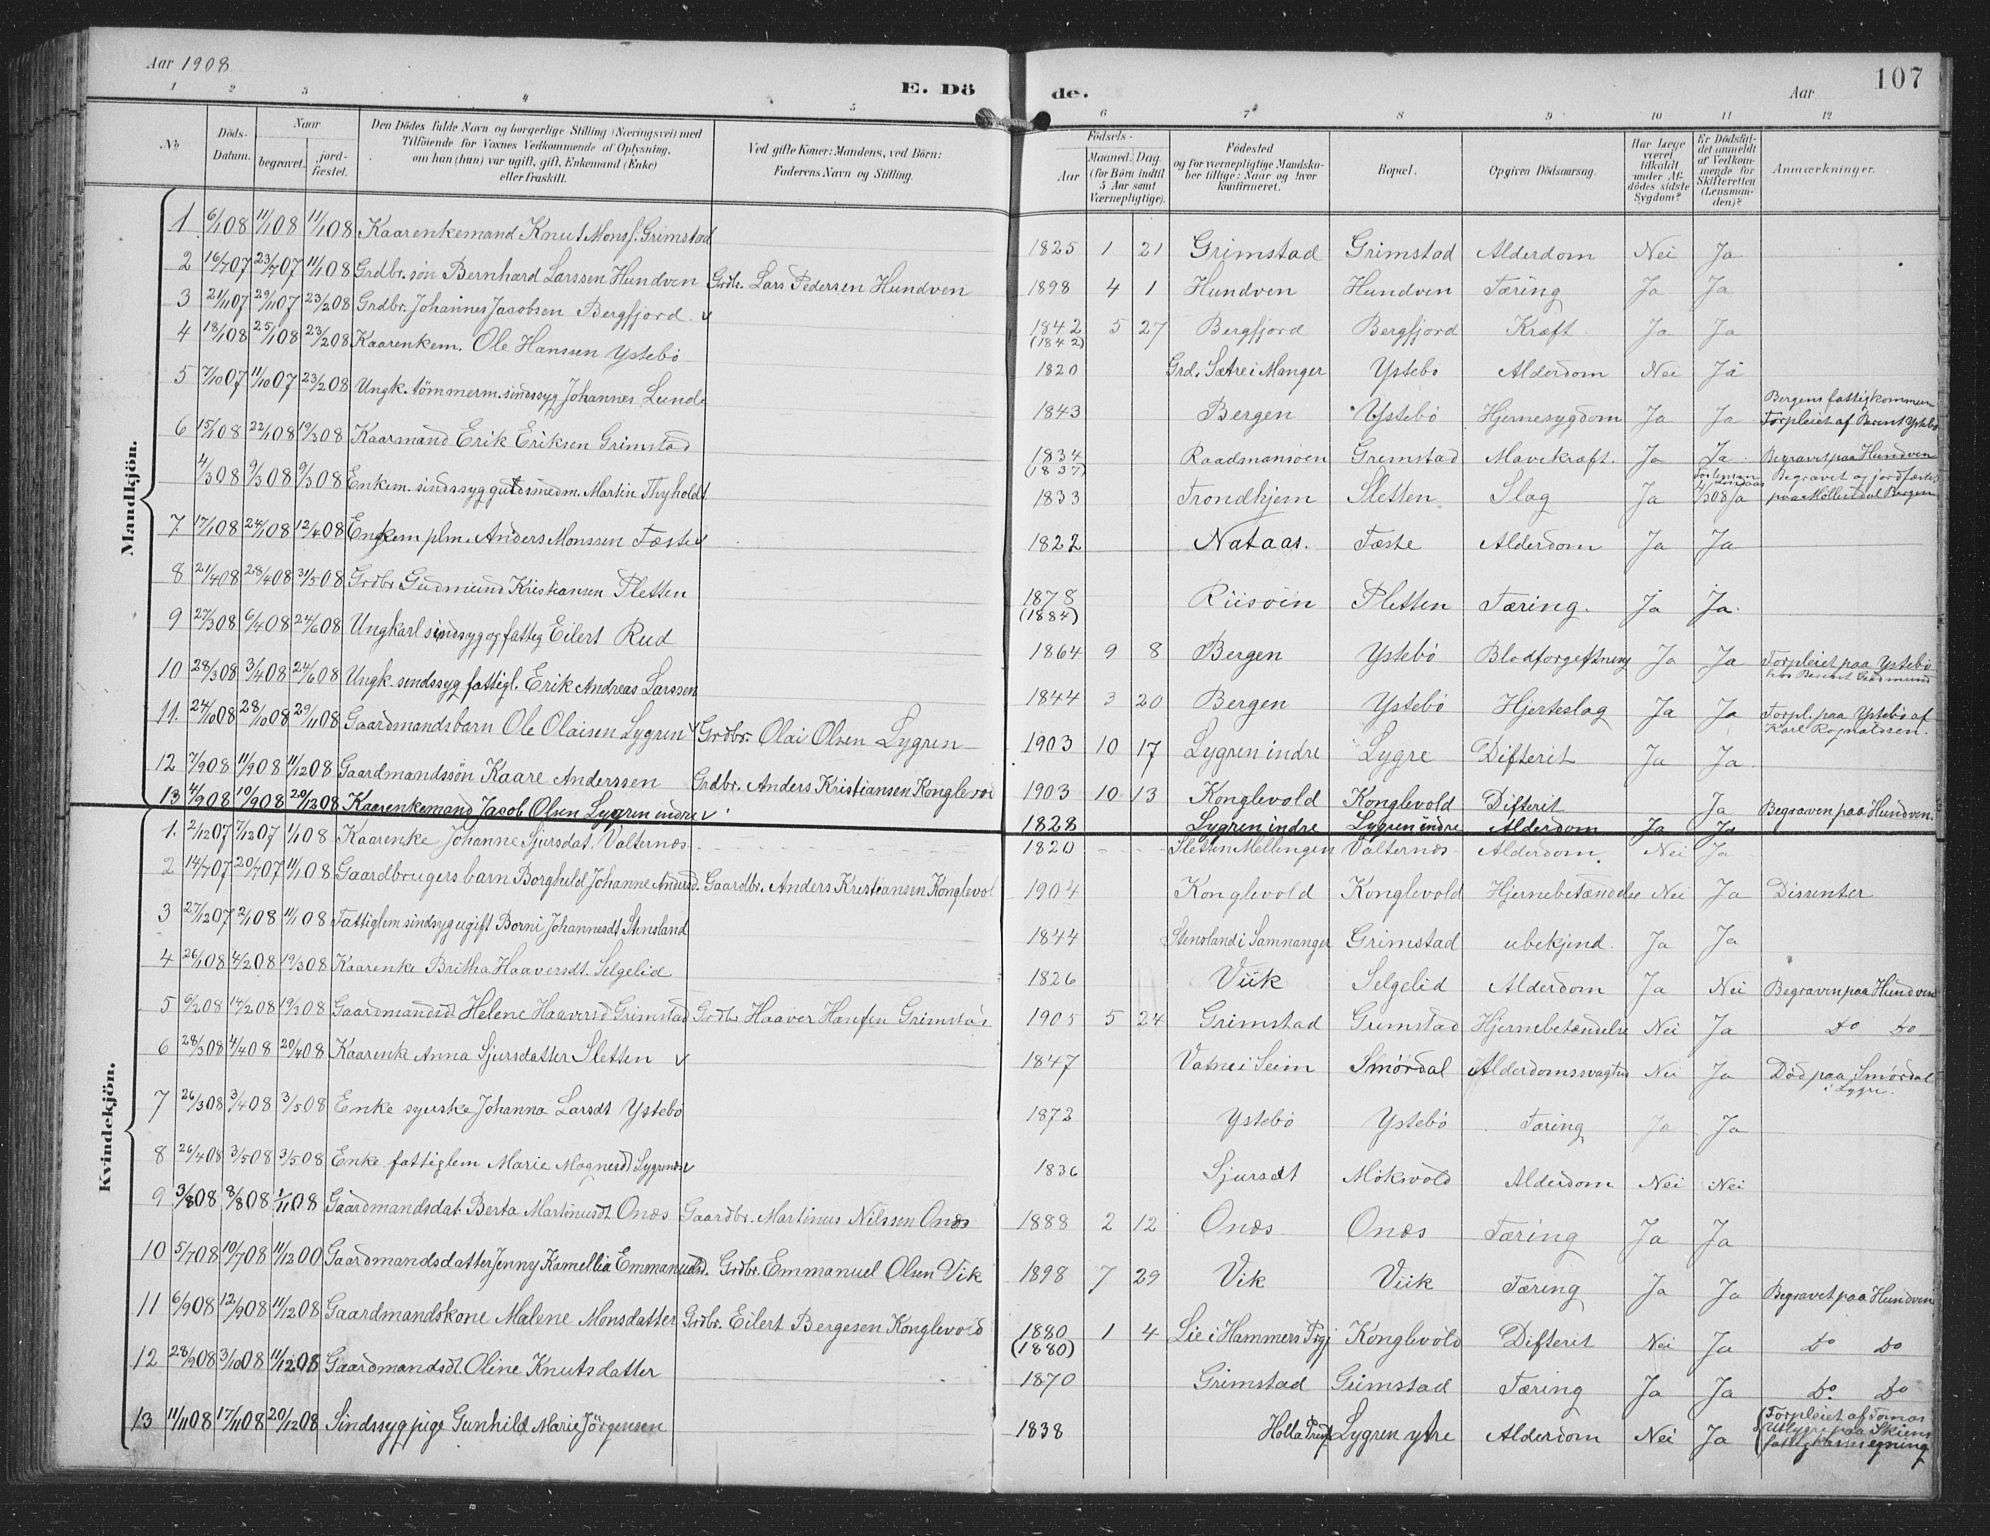 Aar 1908
E. Dö de.
Aar
107
1 2 3 4 5 6 7 8 9 10 11 12
No. | Döds-Datum. | Naar begravet. | jord-fæstet. | Den Dödes fulde Navn og borgerlige Stilling (Næringsvei) med Tilföiende for Voxnes Vedkommende af Oplysning, om han (hun) var ugift, gift, Enkemand (Enke) eller fraskilt. | Ved gifte Koner: Mandens, ved Börn: Faderens Navn og Stilling. | Födsels- Aar | Maaned. Dag. (for Börn indtil 5 Aar samt Værnepligtige). | Födested og for værnepligtige Mandskaber tillige: Naar og hvor konfirmeret. | Bopæl. | Opgiven Dödsaarsag. | Har Læge været tilkaldt under Afdödes sidste Sygdom? | Er Dödsfaldet anmeldt af Vedkommende for Skifteretten (Lensmanden)? | Anmærkninger.
Mandkjön.
1 6/1 08 11/1 08 11/1 08 Kaarenkemand Knut Mons. Grimstad 1825 1 21 Grimstad Grimstad Alderdom Nei Ja
2 16/7 07 23/7 07 11/1 08 Grdbr. søn Bernhard Larssen Hundven Grdbr. Lars Pedersen Hundven 1898 4 1 Hundven Hundven Tæring Ja Ja
3 21/11 07 29/11 07 23/2 08 Grdbr. Johannes Jacobsen Bergfjord 1842 (1842) 5 27 Bergfjord Bergfjord Kræft Ja Ja
4 18/1 08 25/1 08 23/2 08 Kaarenkem. Ole Hanssen Ystebø 1820 Grd. Sætre i Manger Ystebø Alderdom Nei Ja
5 7/10 07 11/10 07 23/2 08 Ungk. tömmerm. sindssyg Johannes Lunde 1843 Bergen Ystebö Hjernesygdom Ja Ja Bergens fattigkommun Forpleiet af Berent Ystebø
6 15/1 08 22/1 08 19/3 08 Kaarmand Erik Eriksen Grimstad 1834 (1837) Raadmansøen Grimstad Mavekræft. Ja Ja Begravet paa Hundven
4/3 08 9/3 08 9/3 08 Enkem. sindssyg guldsmedm. Martin Thyholdt 1833 Trondhjem Sletten Slag Ja 4/3 08 Ja Begravet og jordfæstet paa Møllendal Bergen
7 17/1 08 24/1 08 12/4 08 Enkem plm. Anders Monssen Fæste 1822 Nataas. Fæste Alderdom Ja Ja
8 21/4 08 28/4 08 31/5 08 Grdbr. Gudmund Kristiansen Sletten 1878 (1884) Riisöen Sletten Tæring. Ja Ja.
9 27/3 08 6/4 08 24/6 08 Ungkarl sindsyg og fattig Eilert Rud 1864 9 8 Bergen Ystebø Blodforgeftning Ja Ja Forpleiet paa Ystebø hos Berent Gudmund
10 28/3 08 3/4 08 24/6 08 Ungk. sendssyg fattigl. Erik Andreas Larssen 1844 3 20 Bergen Ystebø Hjerteslag Ja Ja Forpl. paa Ystebø af Karl Rognaldsen.
11. 24/10 08 28/10 08 29/11 08 Gaardmandsbarn Ole Olaisen Lygren Grdbr. Olai Olsen Lygren 1903 10 17 Lygren indre Lygre Difterit Ja Ja
12 7/9 08 11/9 08 11/12 08 Gaardmandssön Kaare Anderssen Grdbr. Anders Kristiansen Konglevol 1903 10 13 Konglevold Konglevold Difterit Ja Begraven paa Hundven.
13 4/9 08 10/9 08 20/12 08 Kaarenkemand Jacob Olsen Lygren indre 1828 Lygren indre Lygren indre Alderdom Ja Ja
Kvindekjön.
1. 2/12 07 7/12 07 1/1 08 Kaarenke Johanne Sjursdat. Valternæs 1820 Sletten Mellingen Valternæs Alderdom. Nei Ja
2 14/7 07 20/7 07 11/1 08 Gaardbrugers barn Borghild Johanne Andersd. Gaardbr. Anders Kristiansen Konglevol 1904 Konglevold Konglevold Hjernebetændelse Nei Ja Dissenter
3 27/12 07 2/1 08 11/1 08 Fattiglem sindsyg ugift Borni Johannesdt Stensland 1844 Stensland i Samnanger Grimstad ubekjend. Ja Ja
4 26/1 08 4/2 08 19/3 08 Kaarenke Britha Haaversdt. Selgelid 1826 Viik Selgelid Alderdom Ja Nei Begraven paa Hundven
5 6/2 08 14/2 08 19/3 08 Gaardmandsdt Helene Haaversd Grimstad Grdbr Haaver Hansen Grimstad 1905 5 24 Grimstad Grimstad Hjernebetændelse Nei Ja Do Do
6 28/3 08 4/4 08 20/4 08 Kaarenke Anna Sjursdatter Sletten 1847 Vatne i Seim Smørdal Alderdomssvagtus Nei Ja Död paa Smördal i Lygre.
7 26/3 08 3/4 08 3/5 08 Enke syerske Johanna Larsdt Ystebø 1872 Ystebö Ystebö Tæring Ja Ja
8 26/4 08 3/5 08 3/5 08 Enke fattiglem Marie Magnesd Lygrenes 1836 Sjursdt Mokvold Alderdom Nei Nei
9 3/8 08 8/8 08 1/11 08 Gaardmandsdat. Berta Martinusdt Onæs Gaardbr. Martinus Nilssen Onæs 1888 2 12 Onæs Onæs Tæring Ja Ja
10 5/7 08 10/7 08 11/12 00 Gaardmandsdatter Jenny Kamellia Emmanuelsd. Grdbr. Emmanuel Olsen Vik 1898 7 29 Vik Viik Tæring Ja Ja Begravet paa Hundven
11 6/9 08 12/9 08 11/12 08 Gaardmandskone Malene Monsdatter Grdbr. Eilert Bergesen Konglevold 1880 (1880) 1 4 Lie i Hammers Prgj Konglevold Difterit Nei Ja Do Do
12 28/9 08 3/10 08 11/12 08 Gaardmandsdt Oline Knutsdatter 1870 Grimstad Grimstad Tæring Ja Ja Do. Do
13 11/11 08 17/11 08 20/12 08 Sindssyg pige Gunhild Marie Jörgensen 1838 Holla Præst Lygren ytre Alderdom Nei Ja (Forpleiet af Tomas Utlygre paa Skiens fattigkasses regning